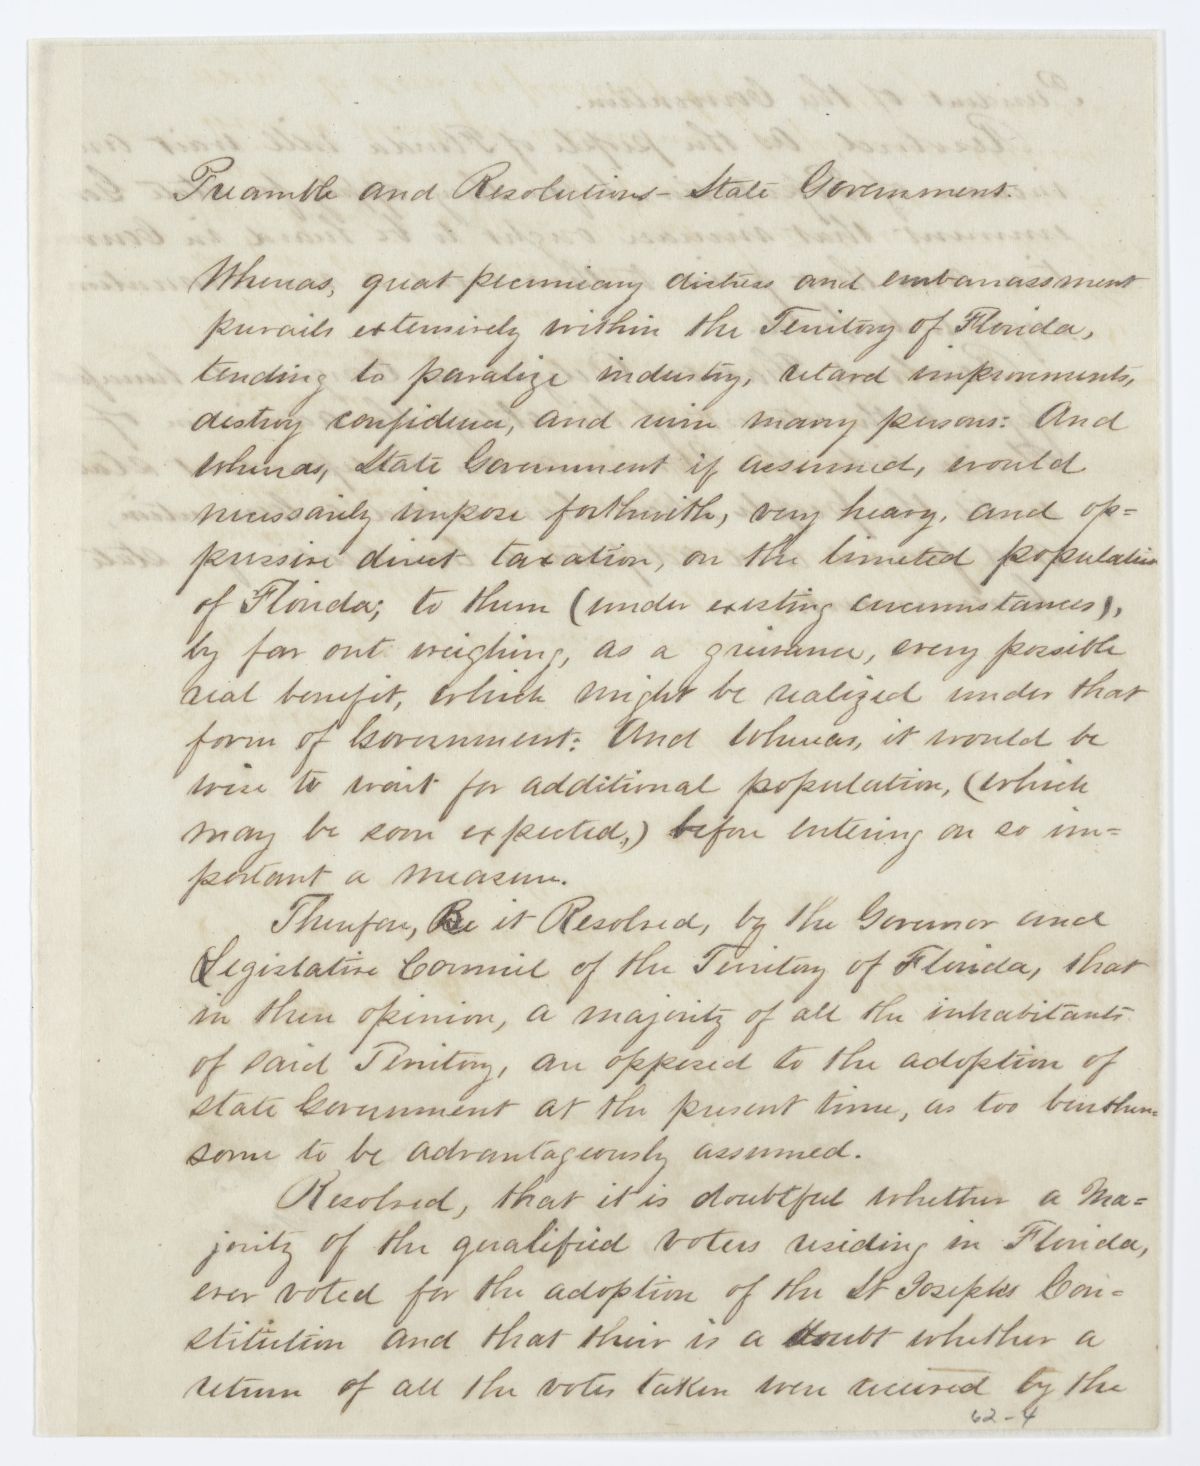 Preamble and Resolutions - State Government.
Whereas, great pecuniary distress and embarrassment
prevails extensively within the Territory of Florida,
tending to paralize industry, retard improvements,
destroy confidence, and ruin many persons: And
Whereas, State Government if assumed, would
necessarily impose forthwith, very heavy, and op=
pressive direct taxation, on the limited population
of Florida; to them (under existing circumstances),
by far out weighing, as a grievance, every possible
real benefit, which might be realized under that
form of Government: And Whereas, it would be
wise to wait for additional population, (which
may be soon expected,) before entering on so im=
portant a measure.
Therefore, Be it Resolved, by the Governor and
Legislative Council of the Territory of Florida, that
in their opinion, a majority of all the inhabitants
of said Territory, are opposed to the adoption of
state Government at the present time, as too burthen=
some to be advantageously assumed.
Resolved, that it is doubtful whether a Ma=
jority of the qualified voters residing in Florida,
ever voted for the adoption of the St Josephs Con=
stitution and that their is a doubt whether a
return of all the votes taken were received by the
62-4